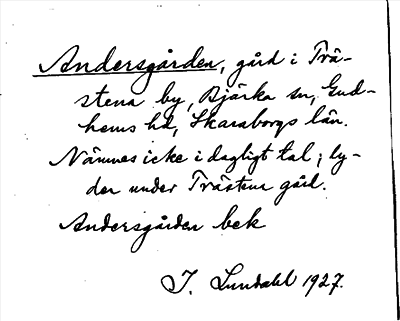 Andersgården, gård i Trä-
stena by, Bjärka sn, Gud-
hems hd, Skaraborgs län.
Nämnes icke i dagligt tal; ly-
der under Trästena gård.
Andersgården bek
I. Lundahl 1927.